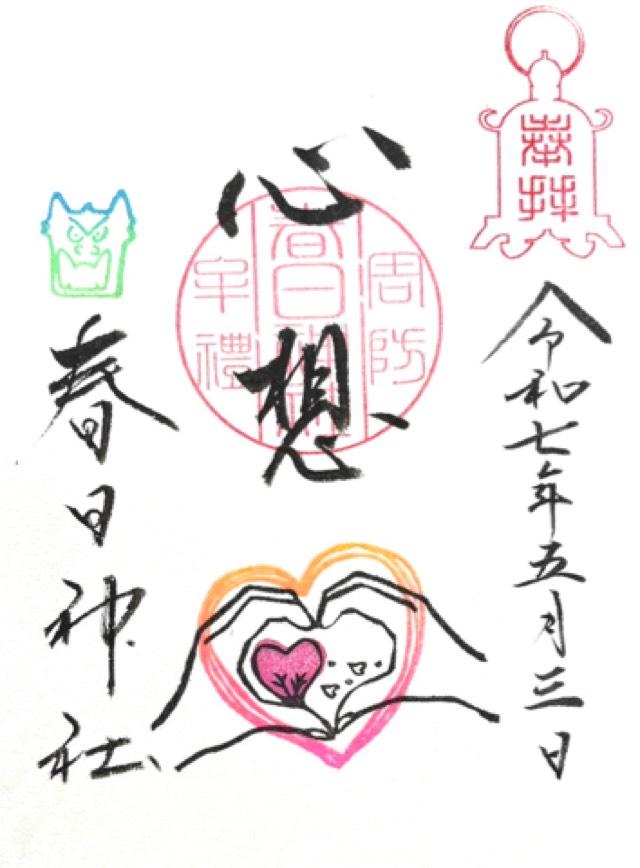 奉拝
令和七年五月三日
周防
春日神社
牟禮
心想
春日神社